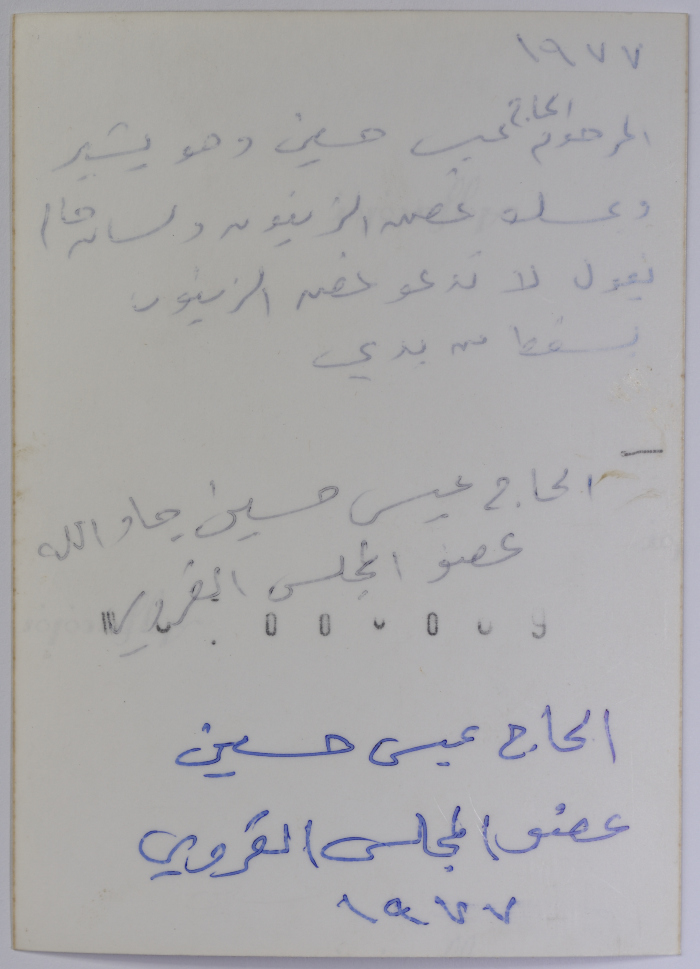 ١٩٧٧
المرحوم الحاج عيسى حسين وهو يشير
ويمسك غصن الزيتون ولسان حال
يقول لا تدعو غصن الزيتون
يسقط من يدي
الحاج عيسى حسين جاد الله
عضو المجلس القروي
الحاج عيسى حسين
عضو المجلس القروي
١٩٧٧